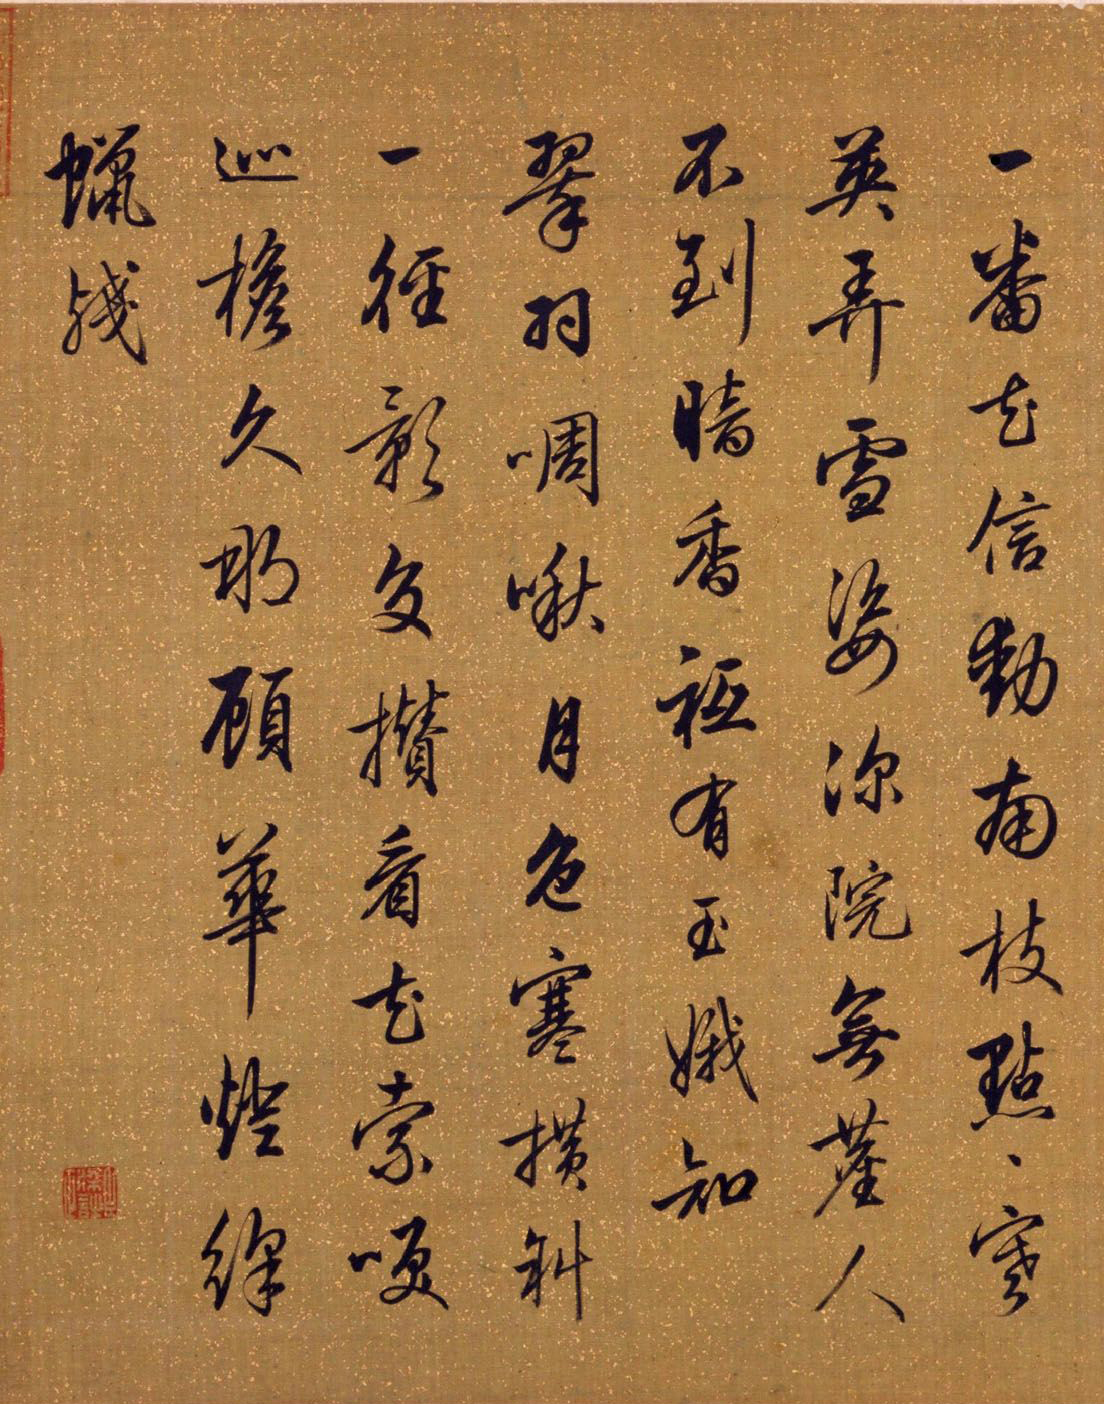 一番花信動南枝點、寒
英弄雪姿深院無塵人
不到暗香祗有玉娥知
翠羽啁啾月色寒橫斜
一徑影交攢看花索咲
巡檐久那顧華燈絳
蠟殘